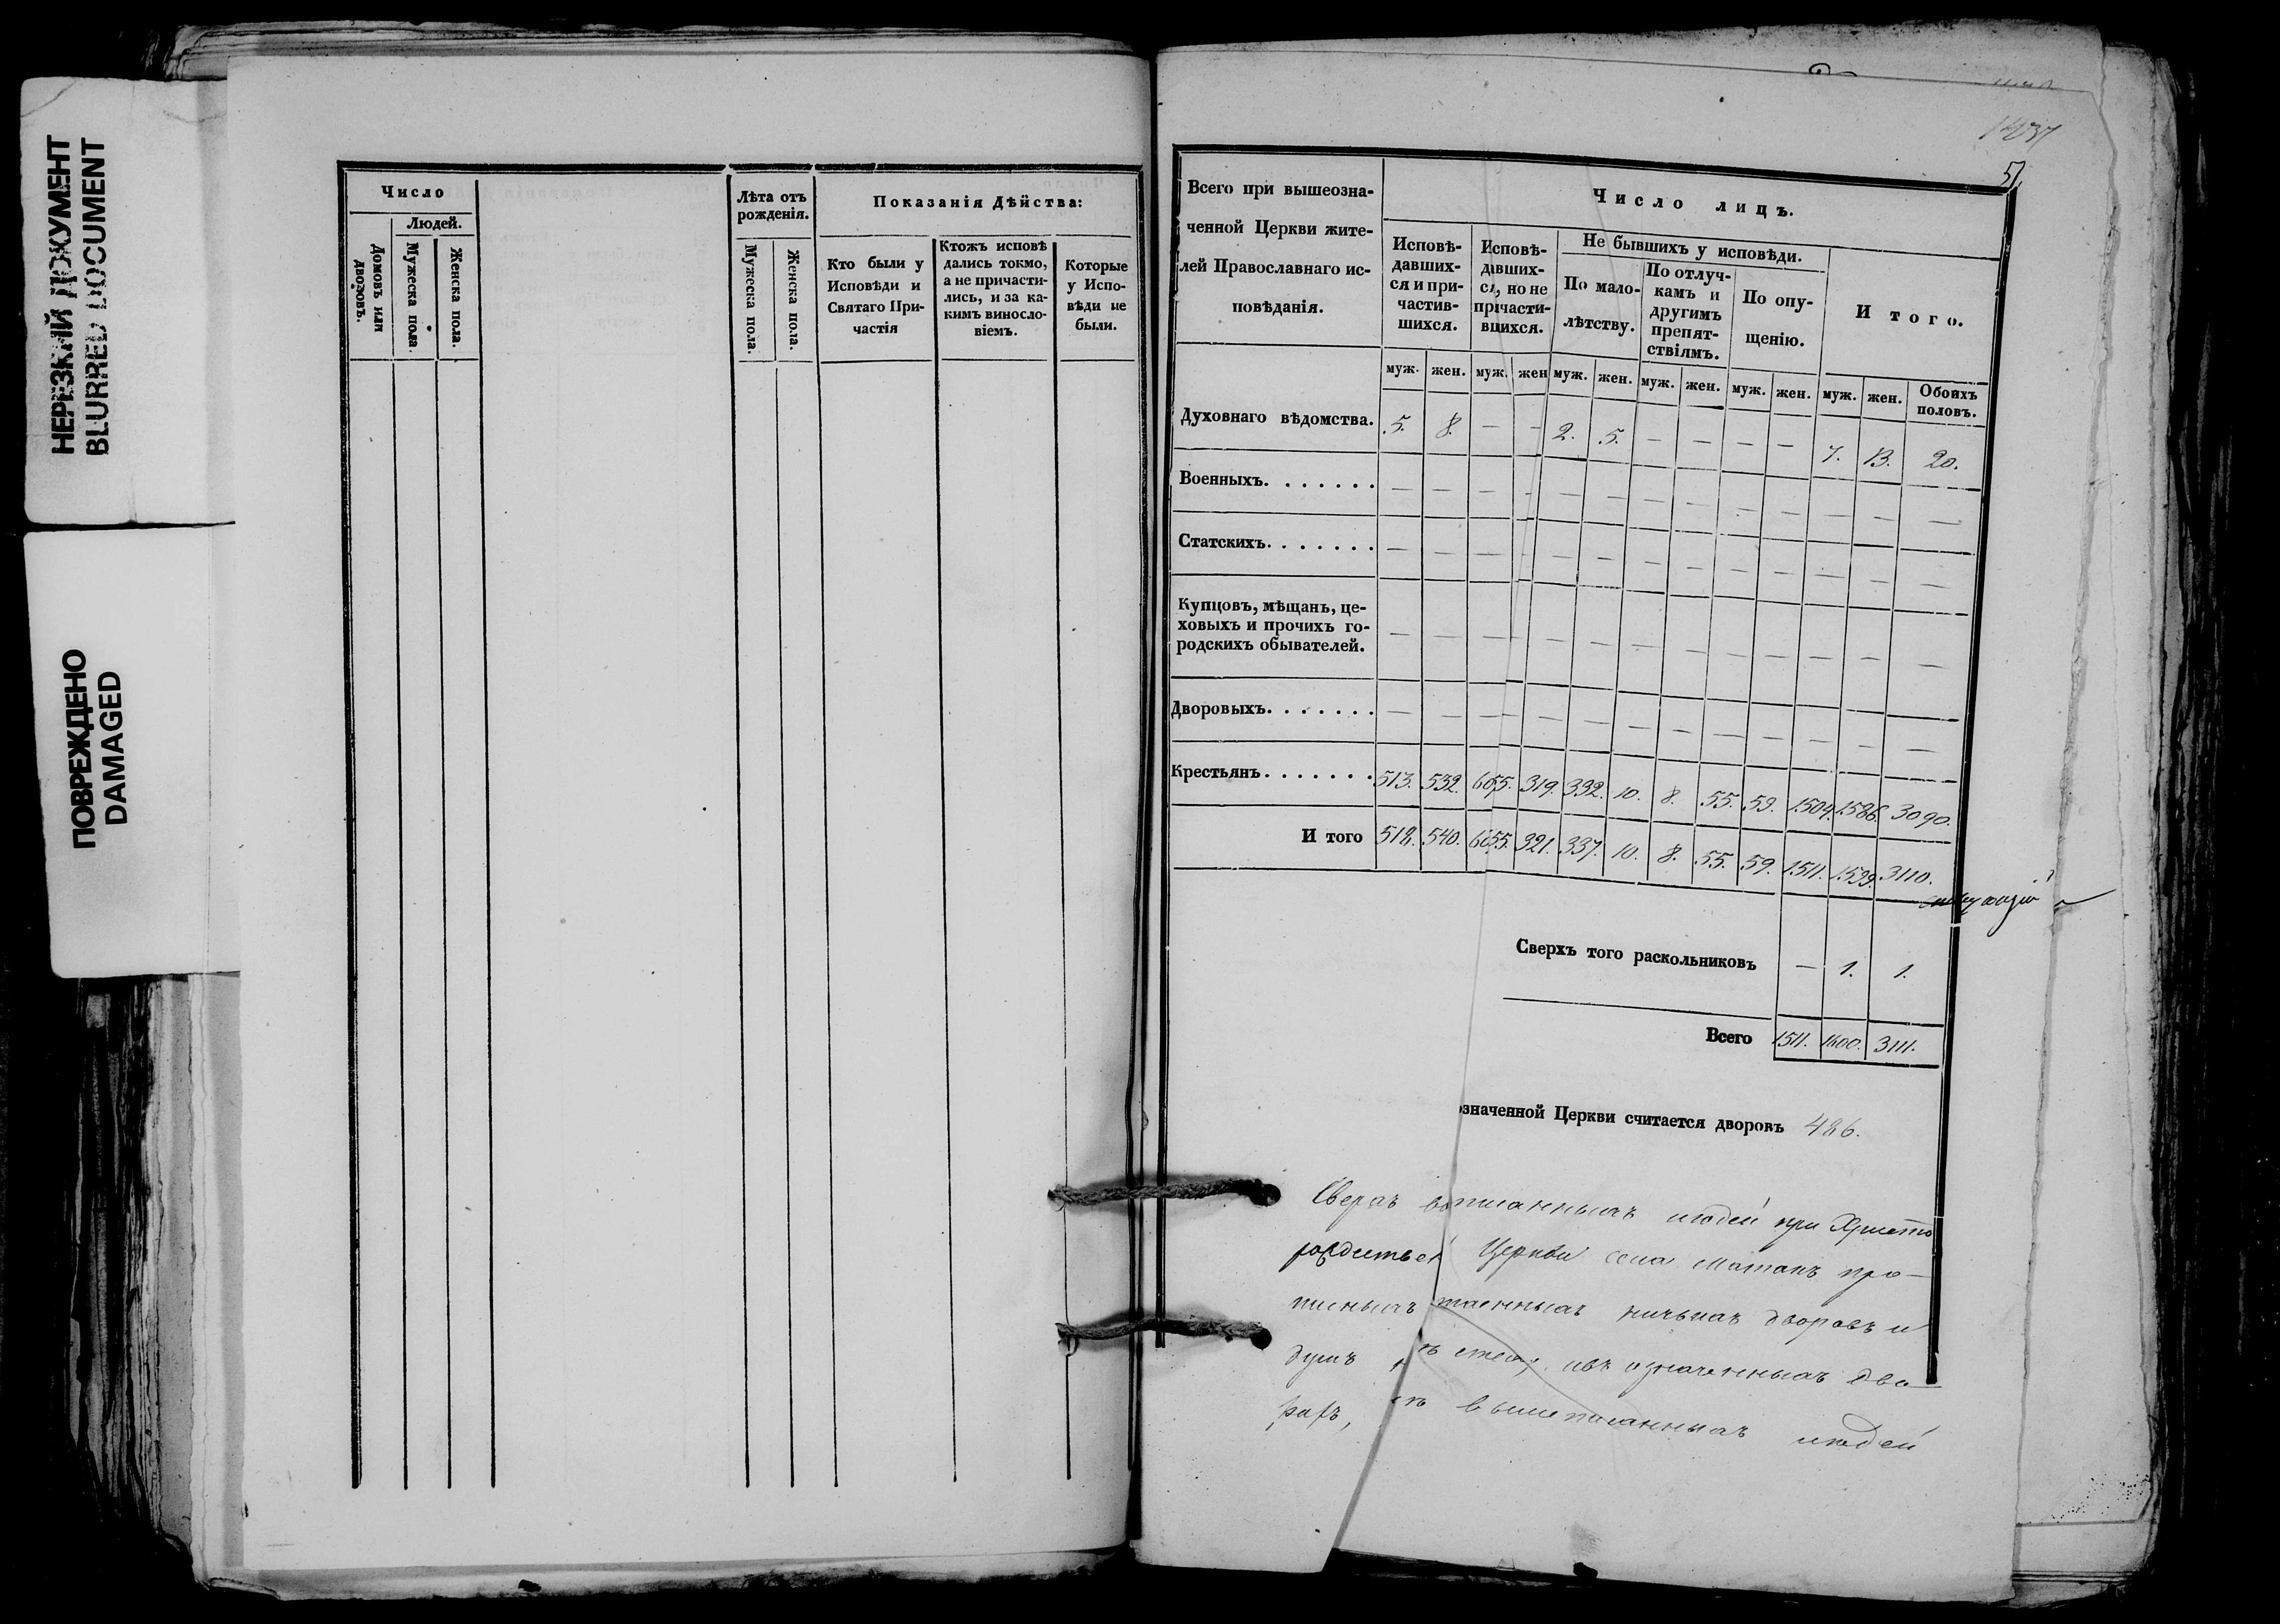 НЕРЕЗКИЙ ДОКУМЕНТ
BLURRED DOCUMENT
ПОВРЕЖДЕНО
DAMAGED
Число
Людей.
Домовъ или дворовъ.
Мужеска пола.
Женска пола.
Лѣта отъ рожденія.
Мужеска пола.
Женска пола.
Показанія Дѣйства:
Кто были у
Исповѣди и
Святаго При-
частія
Ктожъ исповѣ
дались токмо,
а не причасти-
лись, и за ка-
кимъ винosло-
віемъ.
Которые
у Испо-
вѣди не
были.
51.
Всего при вышеозна-
ченной Церкви жите-
лей Православнаго ис-
повѣданія.
Число лицъ.
Исповѣ-
давших-
ся и при-
частив-
шихся.
Исповѣ-
давших-
ся, но не
причасти-
вшихся.
Не бывшихъ у исповѣди.
По мало-
лѣтству.
По отлуч-
камъ и
другимъ
препят-
ствіямъ.
По опу-
щенію.
И того.
муж. жен. муж. жен муж. жен. муж. жен. муж. жен. муж. жен. Обоихъ половъ.
Духовнаго вѣдомства. 5. 8. — — 2. 5. — — — — 7. 13. 20.
Военныхъ. — — — — — — — — — — — — —
Статскихъ. — — — — — — — — — — — — —
Купцовъ, мѣщань, це-
ховыхъ и прочихъ го-
родскихъ обывателей. — — — — — — — — — — — — —
Дворовыхъ. — — — — — — — — — — — — —
Крестьянъ. 513. 532. 319. 332. 10. 8. 55. 59. 1504. 1586. 3090.
И того 518. 540. 321. 337. 10. 8. 55. 59. 1511. 1599. 3110.
Сверхъ того раскольниковъ — 1. 1.
Всего 1511. 1600. 3111.
означенной Церкви считается дворовъ 486.
Сверхъ вописанныхъ людей при Христо
рождествен Церкви села Матакъ про-
писныхъ таенныхъ ничьихъ дворовъ и
душъ означенныхъ дво
рахъ, вышеписанныхъ людей